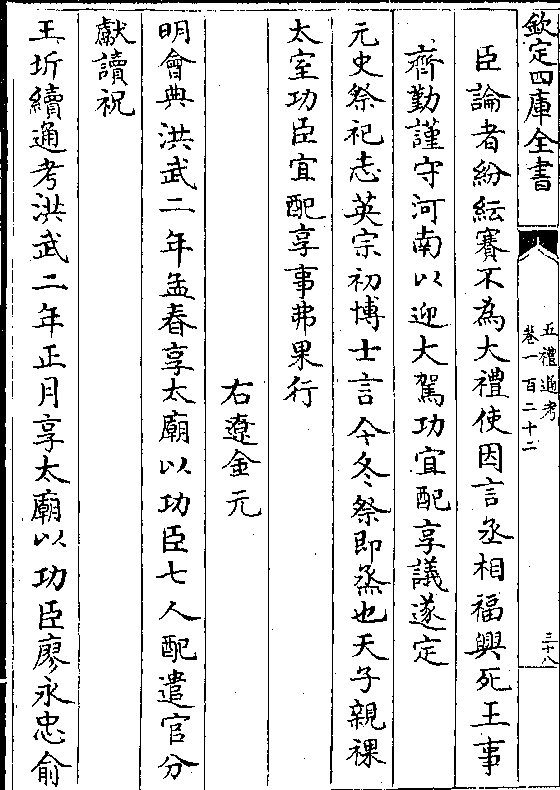 欽定四庫全書
五禮通考
卷一百二十二
三十八
臣論者紛紜賽不為大禮使因言丞相福興死王事
齊勤謹守河南以迎大駕功宜配享議遂定
元史祭祀志英宗初博士言今冬祭即烝也天子親祼
太室功臣宜配享事弗果行
右遼金元
明會典洪武二年孟春享太廟以功臣七人配遣官分
獻讀祝
王圻續通考洪武二年正月享太廟以功臣廖永忠俞